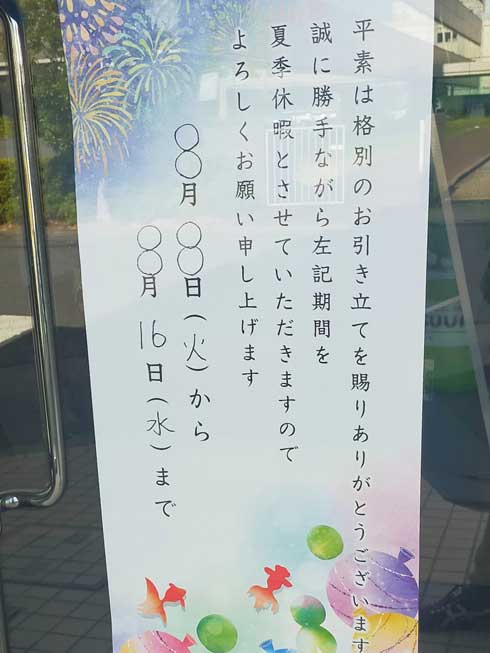 平素は格別のお引き立てを賜りありがとうございます
誠に勝手ながら左記期間を
夏季休暇とさせていただきますので
よろしくお願い申し上げます
8月8日(火)から
8月16日(水)まで